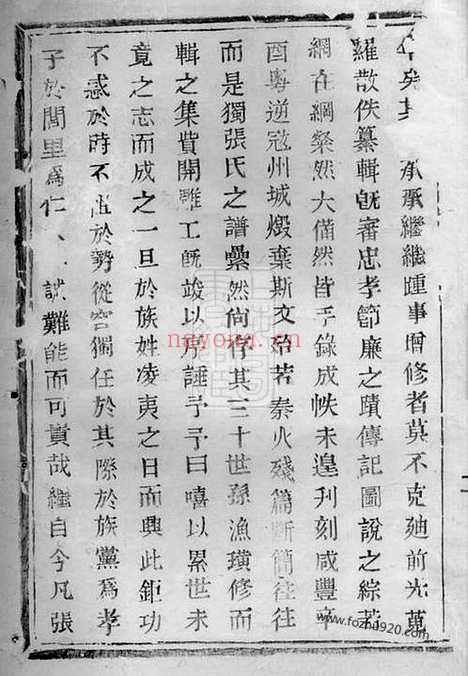 年矣其承承繼繼踵事增修者莫不克廸前光蒐
羅散佚纂輯旣審忠孝節廉之蹟傳記圖說之綜若
網在綱粲然大備然皆手錄成帙未遑刊刻咸豐辛
酉粵逆寇州城燬棄斯文殆若秦火殘篇斷簡往往
而是獨張氏之譜纍然尙存其三十世孫漁璜修而
輯之集貲開雕工旣竣以序諈予予曰嘻以累世未
竟之志而成之一旦於族姓凌夷之日而興此鉅功
不惑於時不詘於勢從容獨任於其際於族黨爲孝
子於閭里爲仁人誠難能而可貴哉繼自今凡張
nayona.cn
www.fozhu920.com